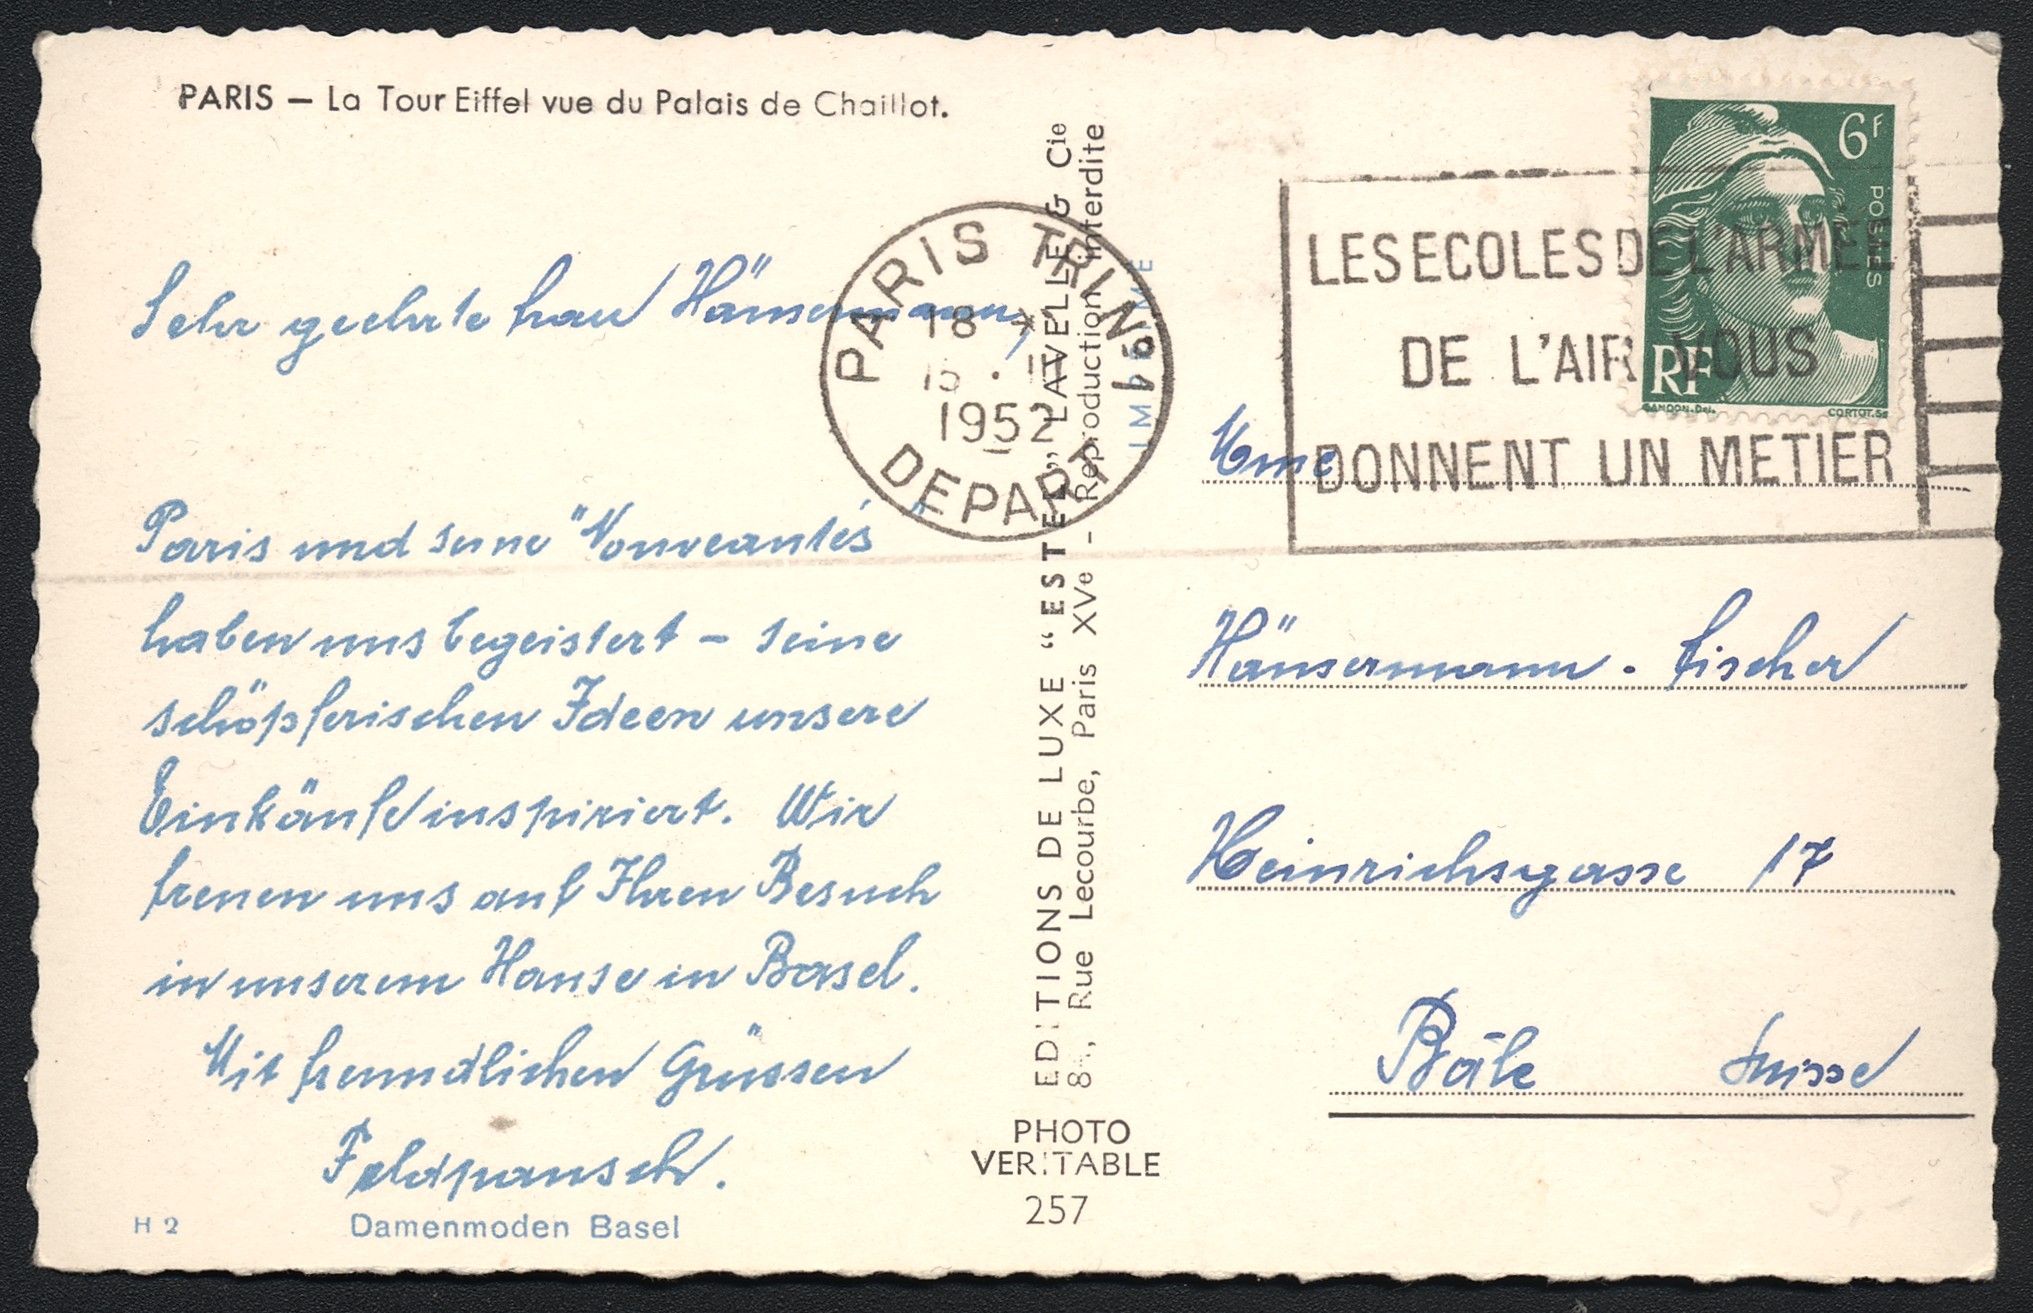 PARIS – La Tour Eiffel vue du Palais de Chaillot.
Sehr geehrte Frau Hänsermann,
Paris und seine "Nouveautés"
haben uns begeistert – seine
schöpferischen Ideen unsere
Einkäufe inspiriert. Wir
freuen uns auf Ihren Besuch
in unserem Hause in Basel.
Mit freundlichen Grüssen
Feldpausch.
H 2
Damenmoden Basel
PARIS TRI No 1
18
1952
DEPART
EDITIONS DE LUXE "ESTEL" LAVELLE & Cie
Rue Lecourbe, Paris XVe - Reproduction interdite
IMPRIMÉ
PHOTO
VERITABLE
257
6F
POSTES
RF
GANDON.Del.
CORTOT.Sc
LES ECOLES DE L'ARMEE
DE L'AIR VOUS
DONNENT UN METIER
Mme
Hänsermann - Fischer
Heinrichsgasse 17
Bâle Suisse